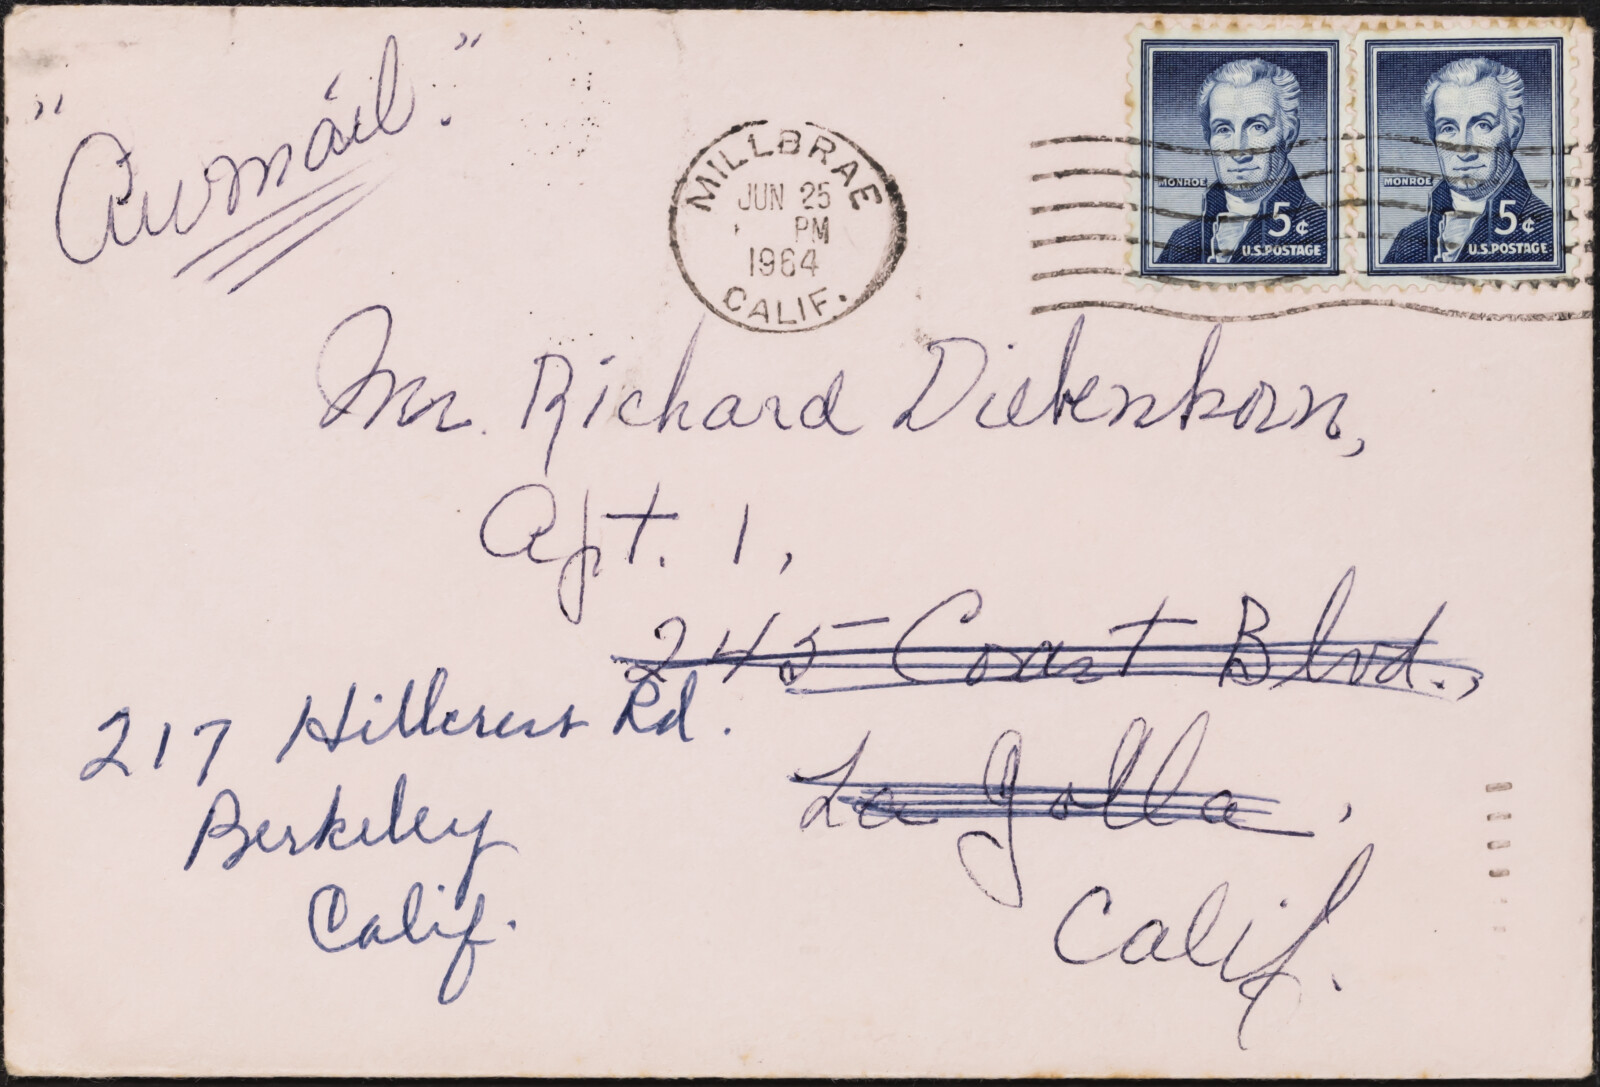 "Airmail."
MILLBRAE
JUN 25
PM
1964
CALIF.
MONROE
5¢
U.S.POSTAGE
MONROE
5¢
U.S.POSTAGE
Mr. Richard Diebenkorn,
Apt. 1,
245 Coast Blvd.,
La Jolla,
Calif.
217 Hillcrest Rd.
Berkeley
Calif.